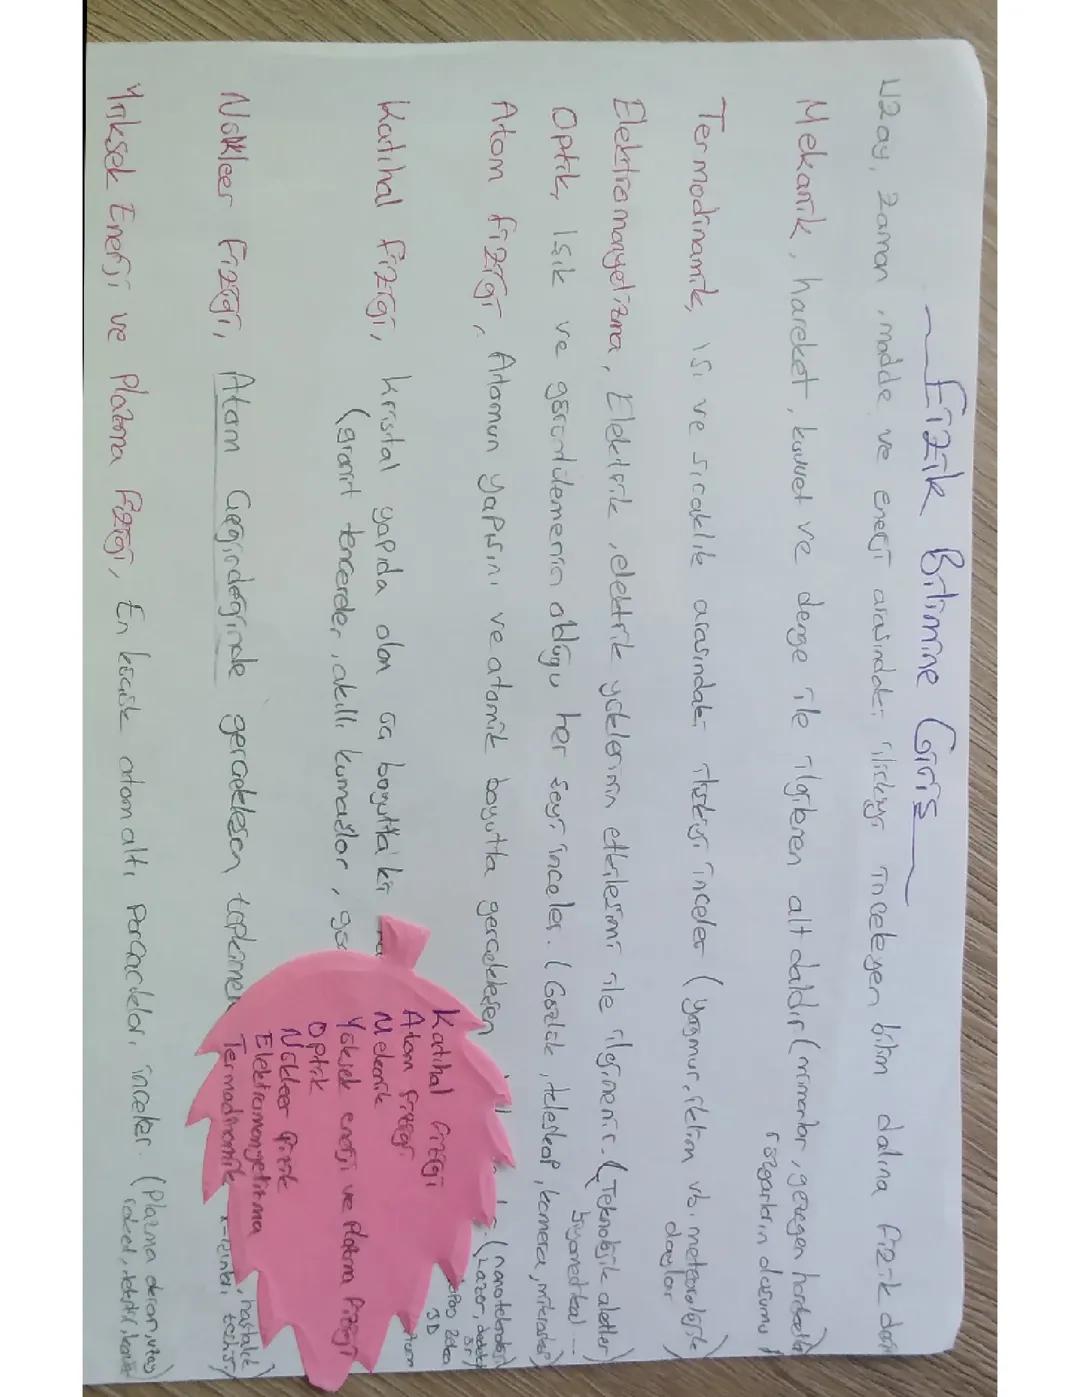 Fizik Bilimine Giriş
Uzay, Zaman, madde ve enerji arasındaki ilişkiyi inceleyen bilim dalına fizik
Mekanik, hareket, kuvvet ve denge ile ilgilenen alt daldır (mimarlar, gezegen hareketleri
rüzgarların durumu)
Termodinamik, ısı ve sıcaklık arasındaki ilişkiyi inceler (yağmur, iletim vb. meteorolojik
olaylar
Elektromanyetizma, Elektrik, elektrik yüklerinin etkileşimi ile ilgilenir. (Teknolojik aletler)
biyomedikal ...
Optik, Işık ve görüntülemenin olduğu her şeyi inceler. (Gözlük, teleskop, kamera, mikroskop)
Atom fiziği, Atomun yapısını ve atomik boyutta gerçekleşen
(nanoteknoloji
(Lazer, dedektör
3D
Katıhal fiziği, kristal yapıda olan ya boyutta ki
(granit tencereler, akıllı kumaşlar,
Nükleer fiziği, Atom Çeğirdeğinde gerçekleşen
hastalık
teşhisi)
Yüksek Enerji ve Plazma fiziği, En küçük atom altı parçacıkları inceler. (Plazma ekran, uzay
roket,
Katıhal fiziği
Atom fiziği
Mekanik
Yüksek enerji ve Plazma fiziği
Optik
Nükleer fizik
Elektromanyetizma
Termodinamik